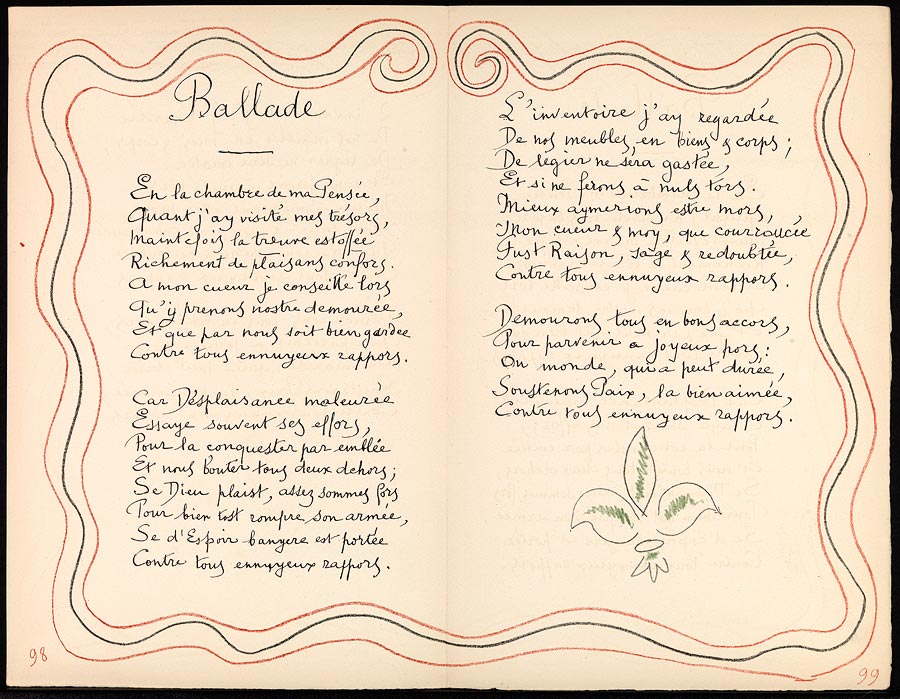 Ballade
En la chambre de ma Pensée,
Quant j'ay visité mes trésors,
Maintefois la treuve estoffée
Richement de plaisans confors.
A mon cueur je conseille lors
Qu'y prenons nostre demourée,
Et que par nous soit bien gardee
Contre tous ennuyeux rappors.
Car Désplaisance maleurée
Essaye souvent ses effors,
Pour la conquester par emblée
Et nous bouter tous deux dehors;
Se Dieu plaist, assez sommes fors
Pour bien tost rompre son armée,
Se d'Espoir banyere est portée
Contre tous ennuyeux rappors.
L'inventoire j'ay regardée
De nos meubles, en biens & corps;
De legier ne sera gastée,
Et si ne ferons à nuls tors.
Mieux aymerions estre mors,
Mon cueur & moy, que courroucée
Fust Raison, sage & redoubtée,
Contre tous ennuyeux rappors.
Demourons tous en bons accors,
Pour parvenir a joyeux pors:
On monde, qui a peut durée,
Soustenons Paix, la bien aimée,
Contre tous ennuyeux rappors.
98
99